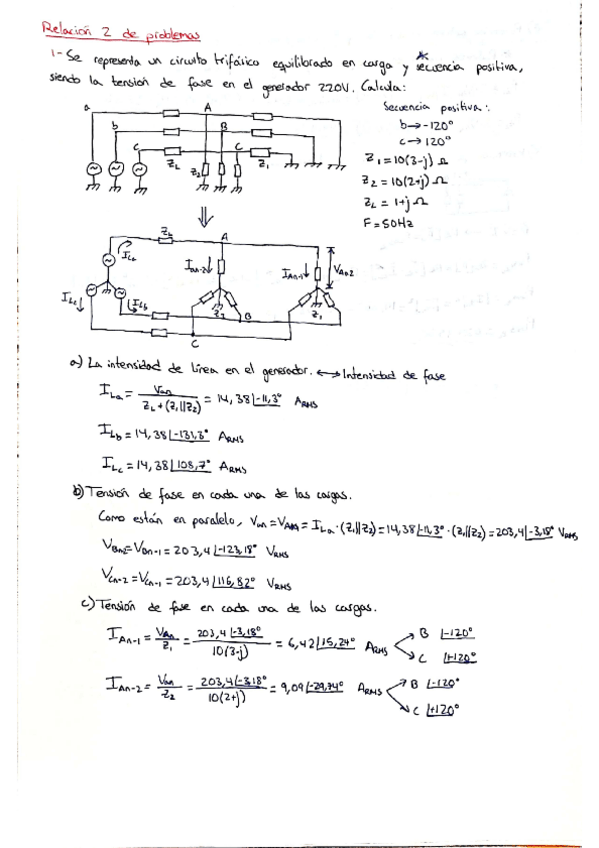 Relación 2 de problemas
1- Se representa un circuito trifásico equilibrado en carga y secuencia positiva,
siendo la tensión de fase en el generador 220V. Calcula:
Secuencia positiva:
b→-120°
c→120°
Z1=10(3-j) Ω
Z2=10(2+j) Ω
ZL = 1+j Ω
F=50Hz
a A
b B
c ZL Z2 C Z1
⇓
ZL A
ILa IAn-2↓ IAn-1↓ VAn2
ILc↓ ILb Z2 B Z1
C
a) La intensidad de línea en el generador. ↔ Intensidad de fase
ILa = Van / ZL+(Z1||Z2) = 14,38|-11,3° ARMS
ILb = 14,38|-131,3° ARMS
ILc = 14,38|108,7° ARMS
b) Tensión de fase en cada una de las cargas.
Como están en paralelo, = ILa·(Z1||Z2)=14,38|-11,3°·(Z1||Z2)=203,4|-3,18° VRMS
VBn2=VBn-1=203,4|-123,18° VRMS
VCn-2=VCn-1=203,4|116,82° VRMS
c) Tensión de fase en cada una de las cargas.
IAn-1 = VAn / Z1 = 203,4|-3,18° / 10(3-j) = 6,42|15,24° ARMS B |-120° C |+120°
IAn-2 = Van / Z2 = 203,4|-3,18° / 10(2+j) = 9,09|-29,74° ARMS B |-120° C |+120°